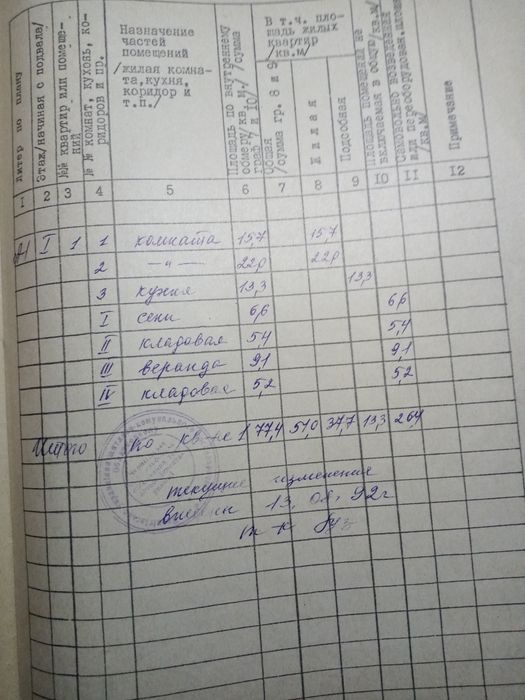 Литер по плану
Этаж/начиная с подвала/
№№ квартир или помеще-
ний
№№ комнат, кухонь, ко-
ридоров и пр.
Назначение
частей
помещений
/жилая комна-
та, кухня,
коридор и
т.п./
Площадь по внутреннему
обмеру/кв.м./ /сумма
граф 7 и 10/
В т.ч. пло-
щадь жилых
квартир
/кв.м/
Общая
/сумма гр. 8 и 9
Жилая
Подсобная
Площадь помещений не
включаемая в общую/кв.м/
Самовольно возведенная
или переоборудован.площ
/кв.м/
Примечание
I 2 3 4 5 6 7 8 9 10 11 12
А1 I 1 1 комната 15,7 15,7
2 —"— 22,0 22,0
3 кухня 13,3 13,3
I сени 6,6 6,6
II кладовая 5,4 5,4
III веранда 9,1 9,1
IV кладовая 5,2 5,2
Итого по кв-ре 1 77,4 51,0 37,7 13,3 26,4
текущие изменения
внесены 13, 08, 92г